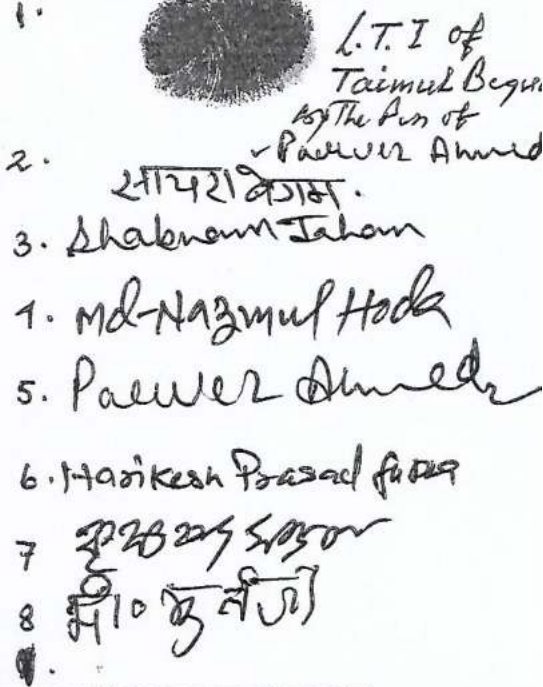 1.
L.T.I of
Taimul Begu
by The Pen of
Parwez Ahmed
2.
सायरा बेगम.
3. Shabnam Jahan
4. Md-Nazmul Hoda
5. Parwez Ahmed
6. Harikesh Prasad
7
8 मो०